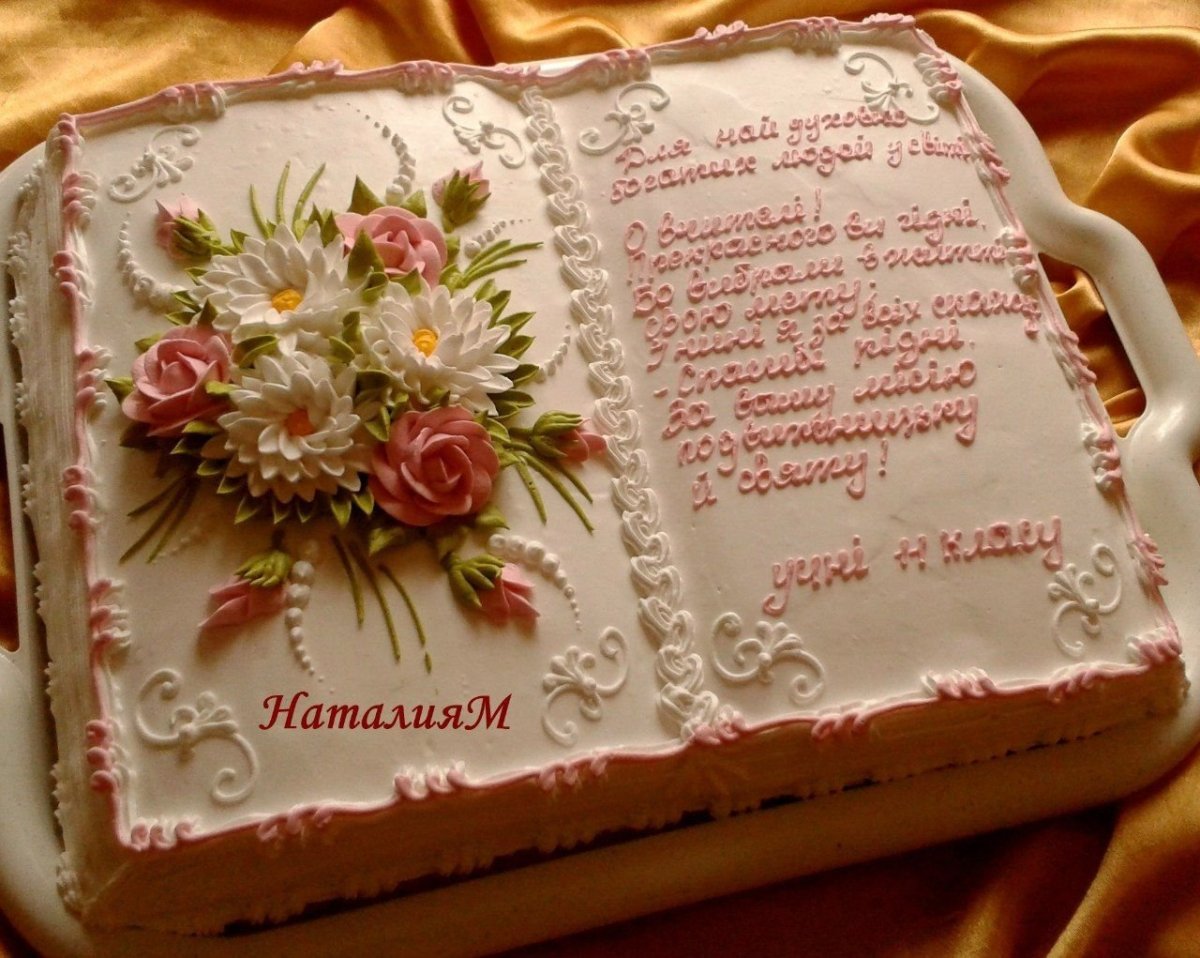 Для най духовно
богатих людей у світі
О вчителі!
Прекрасного ви гідні,
Бо вибрали в житті
свою мету.
Уніні я за всіх скажу
-Спасибі рідні.
За вашу місію
подвижницьку
й святу!
учні н класу
НаталияМ